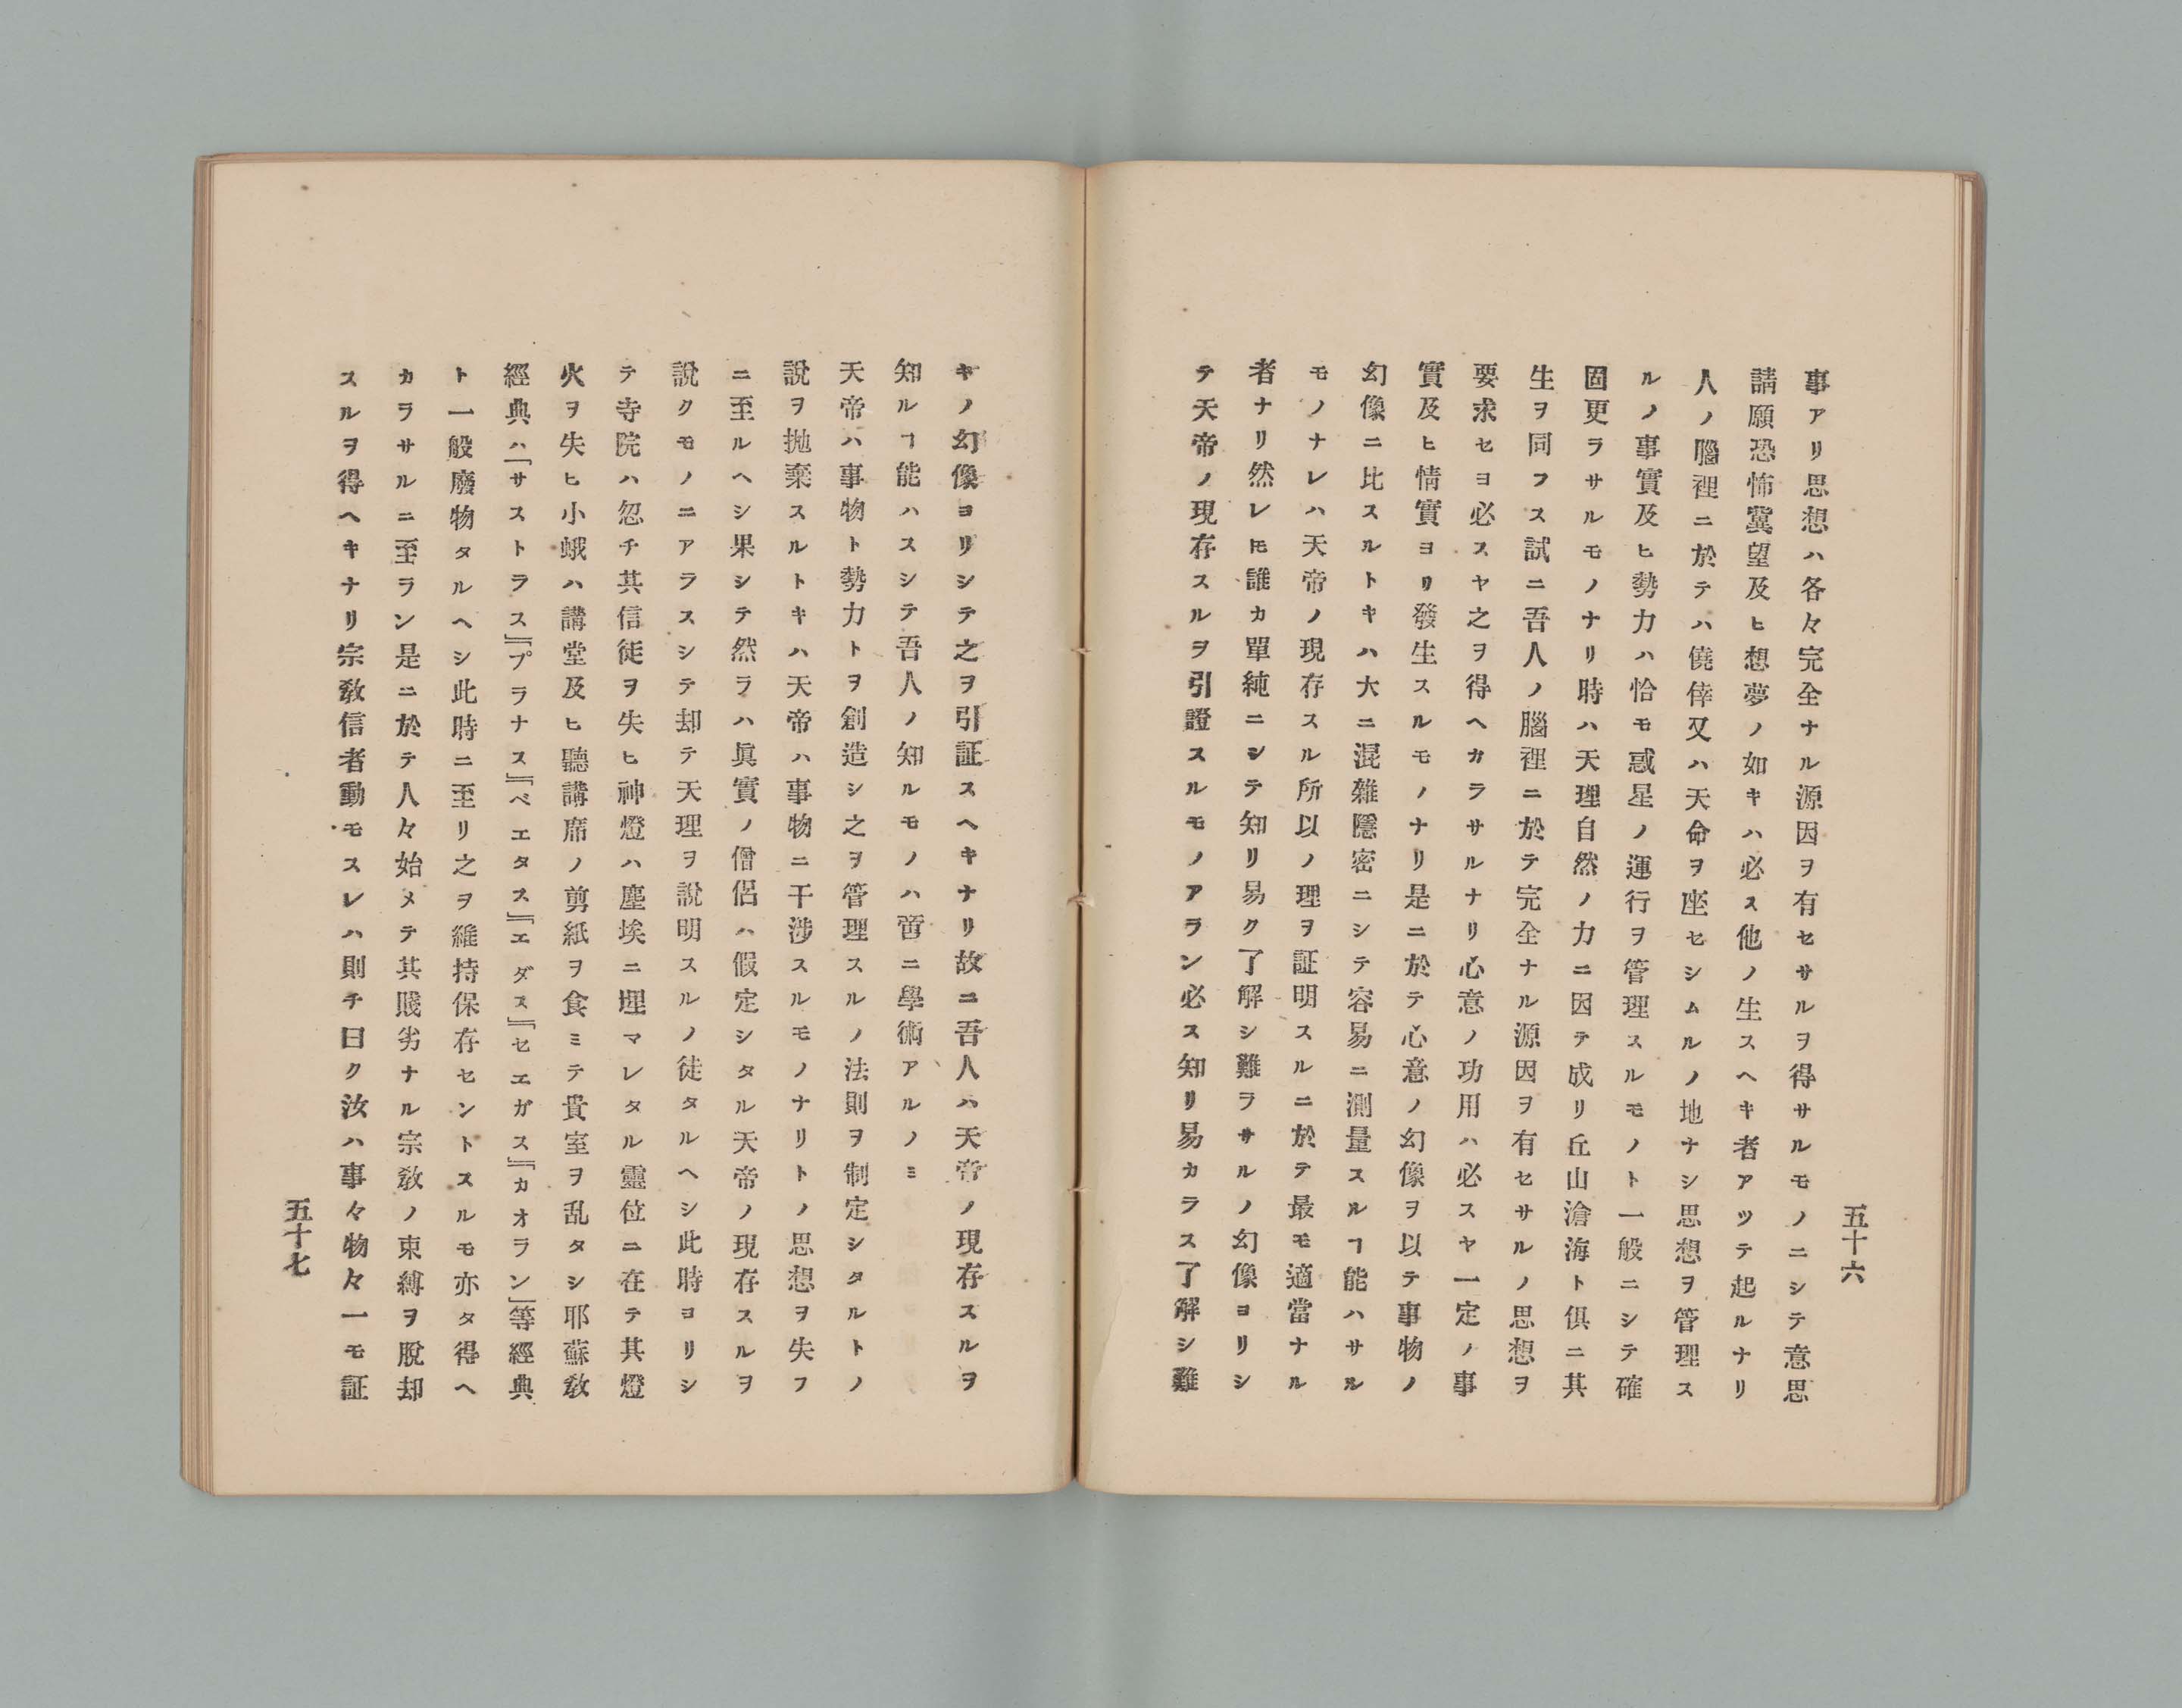 五十六
事アリ思想ハ各々完全ナル源因ヲ有セサルヲ得サルモノニシテ意思
請願恐怖冀望及ヒ想夢ノ如キハ必ス他ノ生スヘキ者アツテ起ルナリ
人ノ腦裡ニ於テハ僥倖又ハ天命ヲ座セシムルノ地ナシ思想ヲ管理ス
ルノ事實及ヒ勢力ハ恰モ惑星ノ運行ヲ管理スルモノト一般ニシテ確
固更ラサルモノナリ時ハ天理自然ノ力ニ因テ成リ丘山滄海ト俱ニ其
生ヲ同フス試ニ吾人ノ腦裡ニ於テ完全ナル源因ヲ有セサルノ思想ヲ
要求セヨ必スヤ之ヲ得ヘカラサルナリ心意ノ功用ハ必スヤ一定ノ事
實及ヒ情實ヨリ發生スルモノナリ是ニ於テ心意ノ幻像ヲ以テ事物ノ
幻像ニ比スルトキハ大ニ混雜隱密ニシテ容易ニ測量スルヿ能ハサル
モノナレハ天帝ノ現存スル所以ノ理ヲ証明スルニ於テ最モ適當ナル
者ナリ然レ𪜈誰カ單純ニシテ知リ易ク了解シ難ラサルノ幻像ヨリシ
テ天帝ノ現存スルヲ引證スルモノアラン必ス知リ易カラス了解シ難
キノ幻像ヨリシテ之ヲ引証スヘキナリ故ニ吾人ハ天帝ノ現存スルヲ
知ルヿ能ハスシテ吾人ノ知ルモノハ啻ニ學術アルノミ
天帝ハ事物ト勢力トヲ創造シ之ヲ管理スルノ法則ヲ制定シタルトノ
說ヲ拋棄スルトキハ天帝ハ事物ニ干涉スルモノナリトノ思想ヲ失フ
ニ至ルヘシ果シテ然ラハ眞實ノ僧侶ハ假定シタル天帝ノ現存スルヲ
說クモノニアラスシテ却テ天理ヲ說明スルノ徒タルヘシ此時ヨリシ
テ寺院ハ忽チ其信徒ヲ失ヒ神燈ハ塵埃ニ埋マレタル靈位ニ在テ其燈
火ヲ失ヒ小蛾ハ講堂及ヒ聽講席ノ剪紙ヲ食ミテ貴室ヲ乱タシ耶蘇敎
經典ハ「サストラス」『プラナス』『ベエタス』『エダス』『セエガス』『カオラン」等經典
ト一般廢物タルヘシ此時ニ至リ之ヲ維持保存セントスルモ亦タ得ヘ
カラサルニ至ラン是ニ於テ人々始メテ其賤劣ナル宗敎ノ束縛ヲ脫却
スルヲ得ヘキナリ宗敎信者動モスレハ則チ曰ク汝ハ事々物々一モ証
五十七